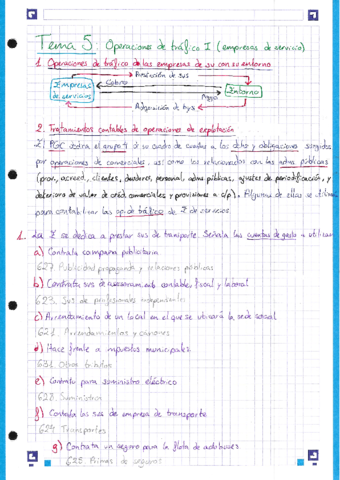 Tema 5: Operaciones de tráfico I (empresas de servicio)
1. Operaciones de tráfico de las empresas de sv con su entorno
Prestación de svs
Cobro
Empresas de servicios
Entorno
Pago
Adquisición de b y s
2. Tratamientos contables de operaciones de explotación
El PGC dedica el grupo 4 de su cuadro de cuentas a los dcho y obligaciones surgidos
por operaciones de comerciales, así como los relacionados con las adms públicas
(prov, acreed, clientes, deudores, personal, adms públicas, ajustes de periodificación, y
deterioro de valor de créd comerciales y provisiones a c/p). Algunas de ellas se utilizan
para contabilizar las op de tráfico de E de servicios
1. La E se dedica a prestar svs de transporte. Señala las cuentas de gasto a utilizar
a) Contrata campaña publicitaria
627. Publicidad propaganda y relaciones públicas
b) Contrata svs de asesoramiento contable, fiscal y laboral
623. Svs de profesionales independientes
c) Arrendamiento de un local en el que se ubicará la sede social
621. Arrendamientos y cánones
d) Hace frente a impuestos municipales
631. Otros tributos
e) Contrata para suministro eléctrico
628. Suministros
f) Contrata los svs de empresa de transporte
624. Transportes
g) Contrata un seguro para la flota de autobuses
625. Primas de seguros